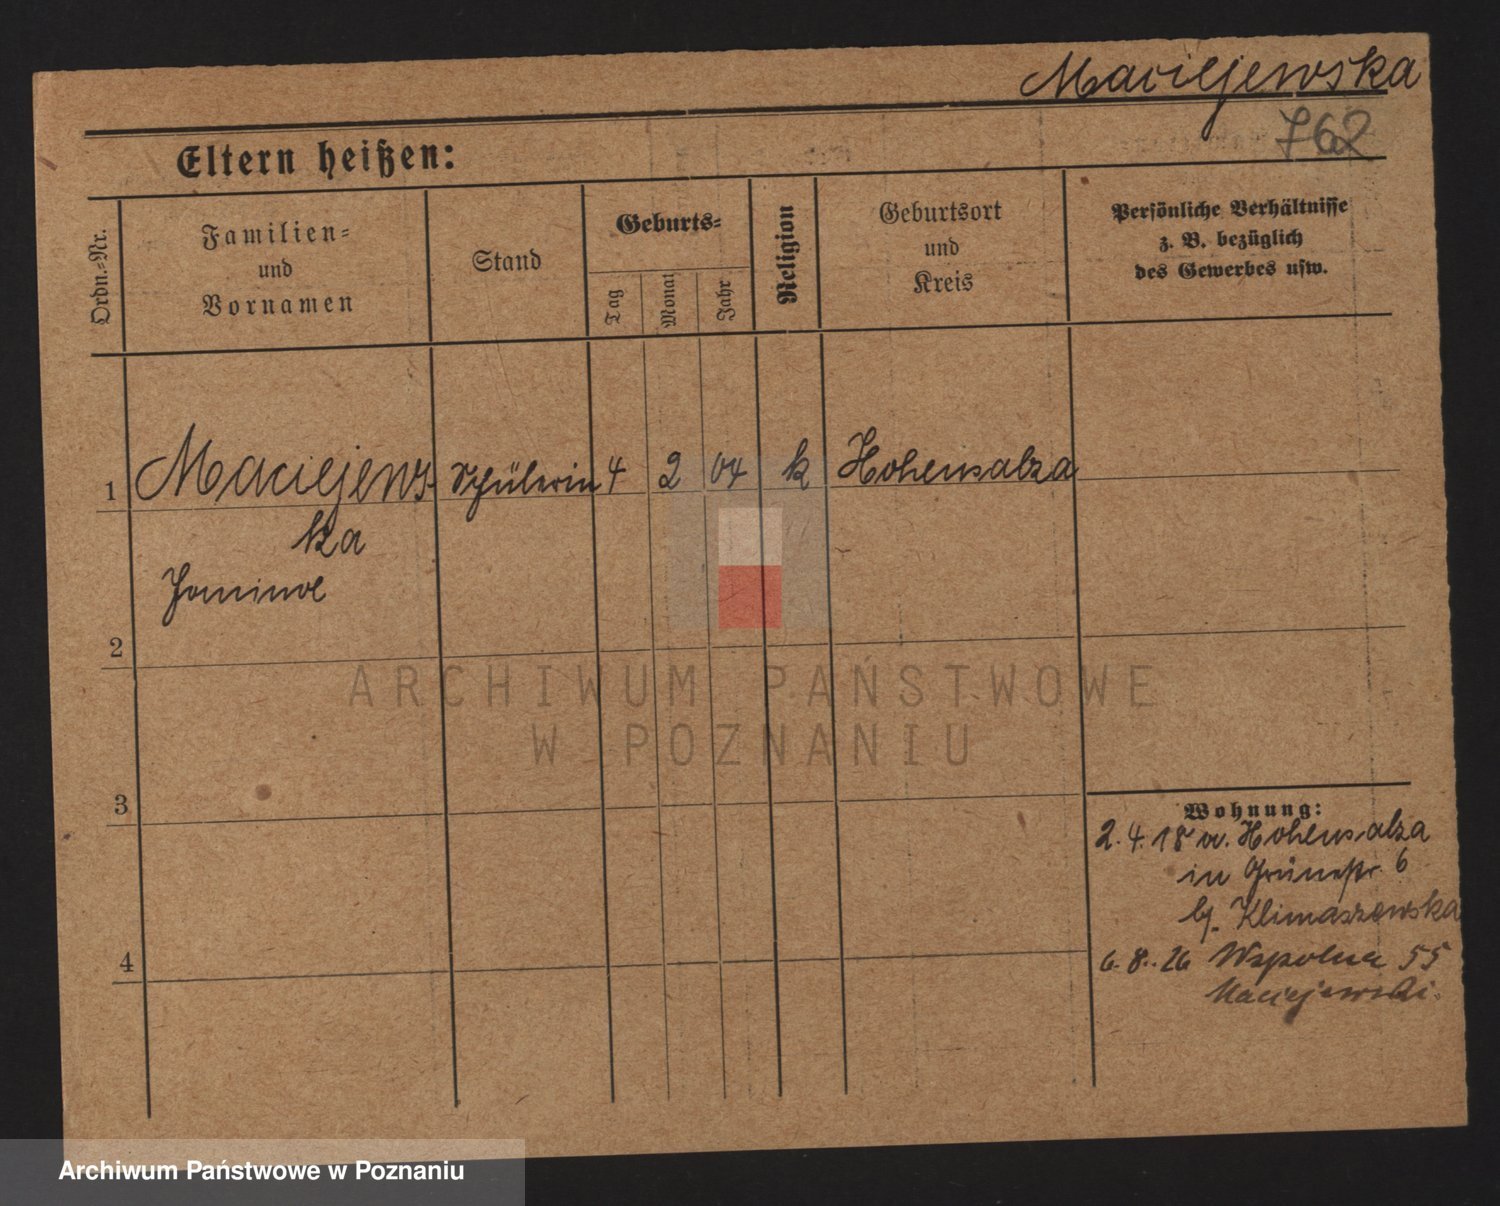 Maciejewska
762
Eltern heißen:
Ordn.-Nr.
Familien-
und
Vornamen
Stand
Geburts-
Tag
Monat
Jahr
Religion
Geburtsort
und
Kreis
Persönliche Verhältnisse
z. B. bezüglich
des Gewerbes usw.
1 Maciejews- Schülerin 4 2 04 k Hohensalza
ka
2
3
4
Wohnung:
2.4.18 v. Hohensalza
in Grünestr 6
bj. Klimaszewska
6.8.26 Wspolna 55
Maciejewski.
ARCHIWUM PAŃSTWOWE
W POZNANIU
Archiwum Państwowe w Poznaniu